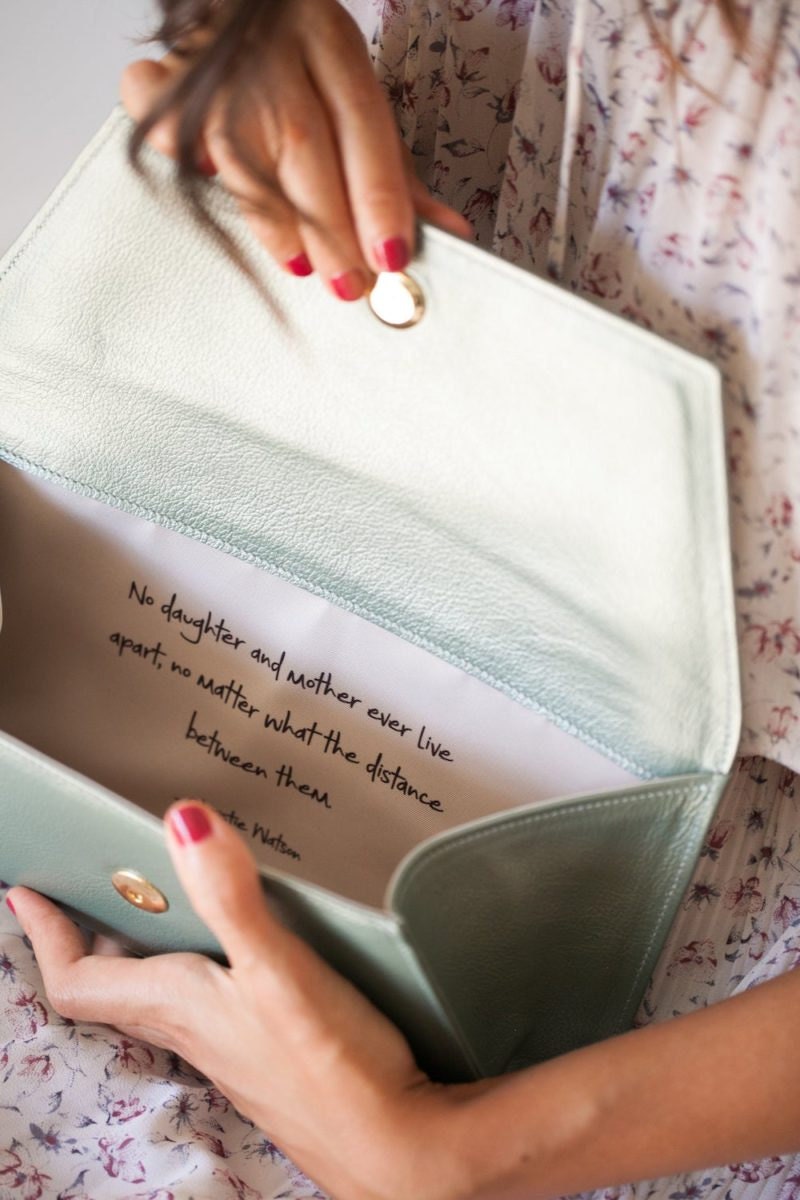 No daughter and mother ever live
apart, no matter what the distance
between them
Watson